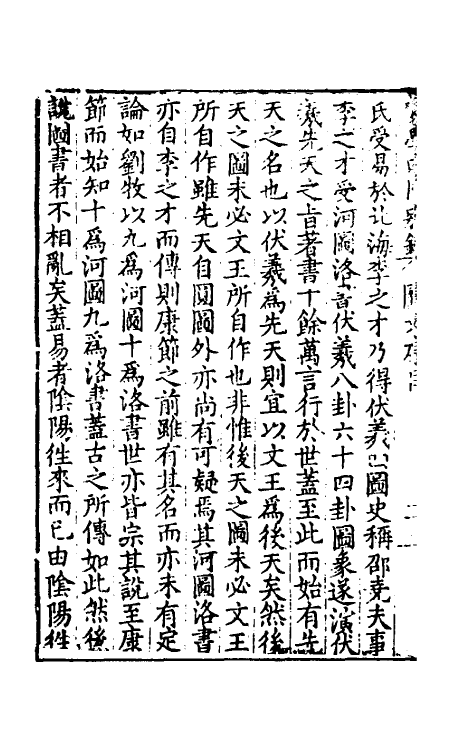 氏受易於北海李之才乃得伏羲之圖史稱邵堯夫事
李之才受河圖洛書伏羲八卦六十四卦圖象遂演伏
羲先天之旨著書十餘萬言行於世蓋至此而始有先
天之名也以伏羲為先天則宜以文王為後天矣然後
天之圖未必文王所自作也非惟後天之圖未必文王
所自作雖先天自圓圖外亦尚有可疑焉其河圖洛書
亦自李之才而傳則康節之前雖有其名而亦未有定
論如劉牧以九為河圖十為洛書世亦皆宗其說至康
節而始知十為河圖九為洛書蓋古之所傳如此然後
說圖書者不相亂矣蓋易者陰陽往來而已由陰陽往